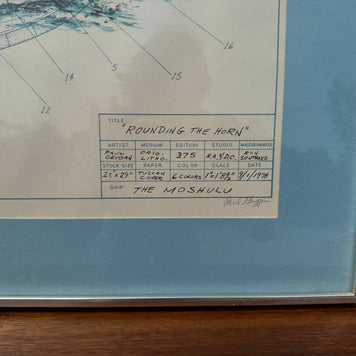 16
5
14
15
12
TITLE
"ROUNDING THE HORN"
ARTIST MEDIUM EDITION STUDIO MASTER PRINTER
PAUL GEYGAN ORIG. LITHO. 375 K.A.Y.D.C. RON SOUTHARD
STOCK SIZE PAPER COLOR SCALE DATE
23"x29" TUSCAN COVER 6 COLORS 1"=1'8½" 9/1/1978
SHIP THE MOSHULU
Paul Geygan